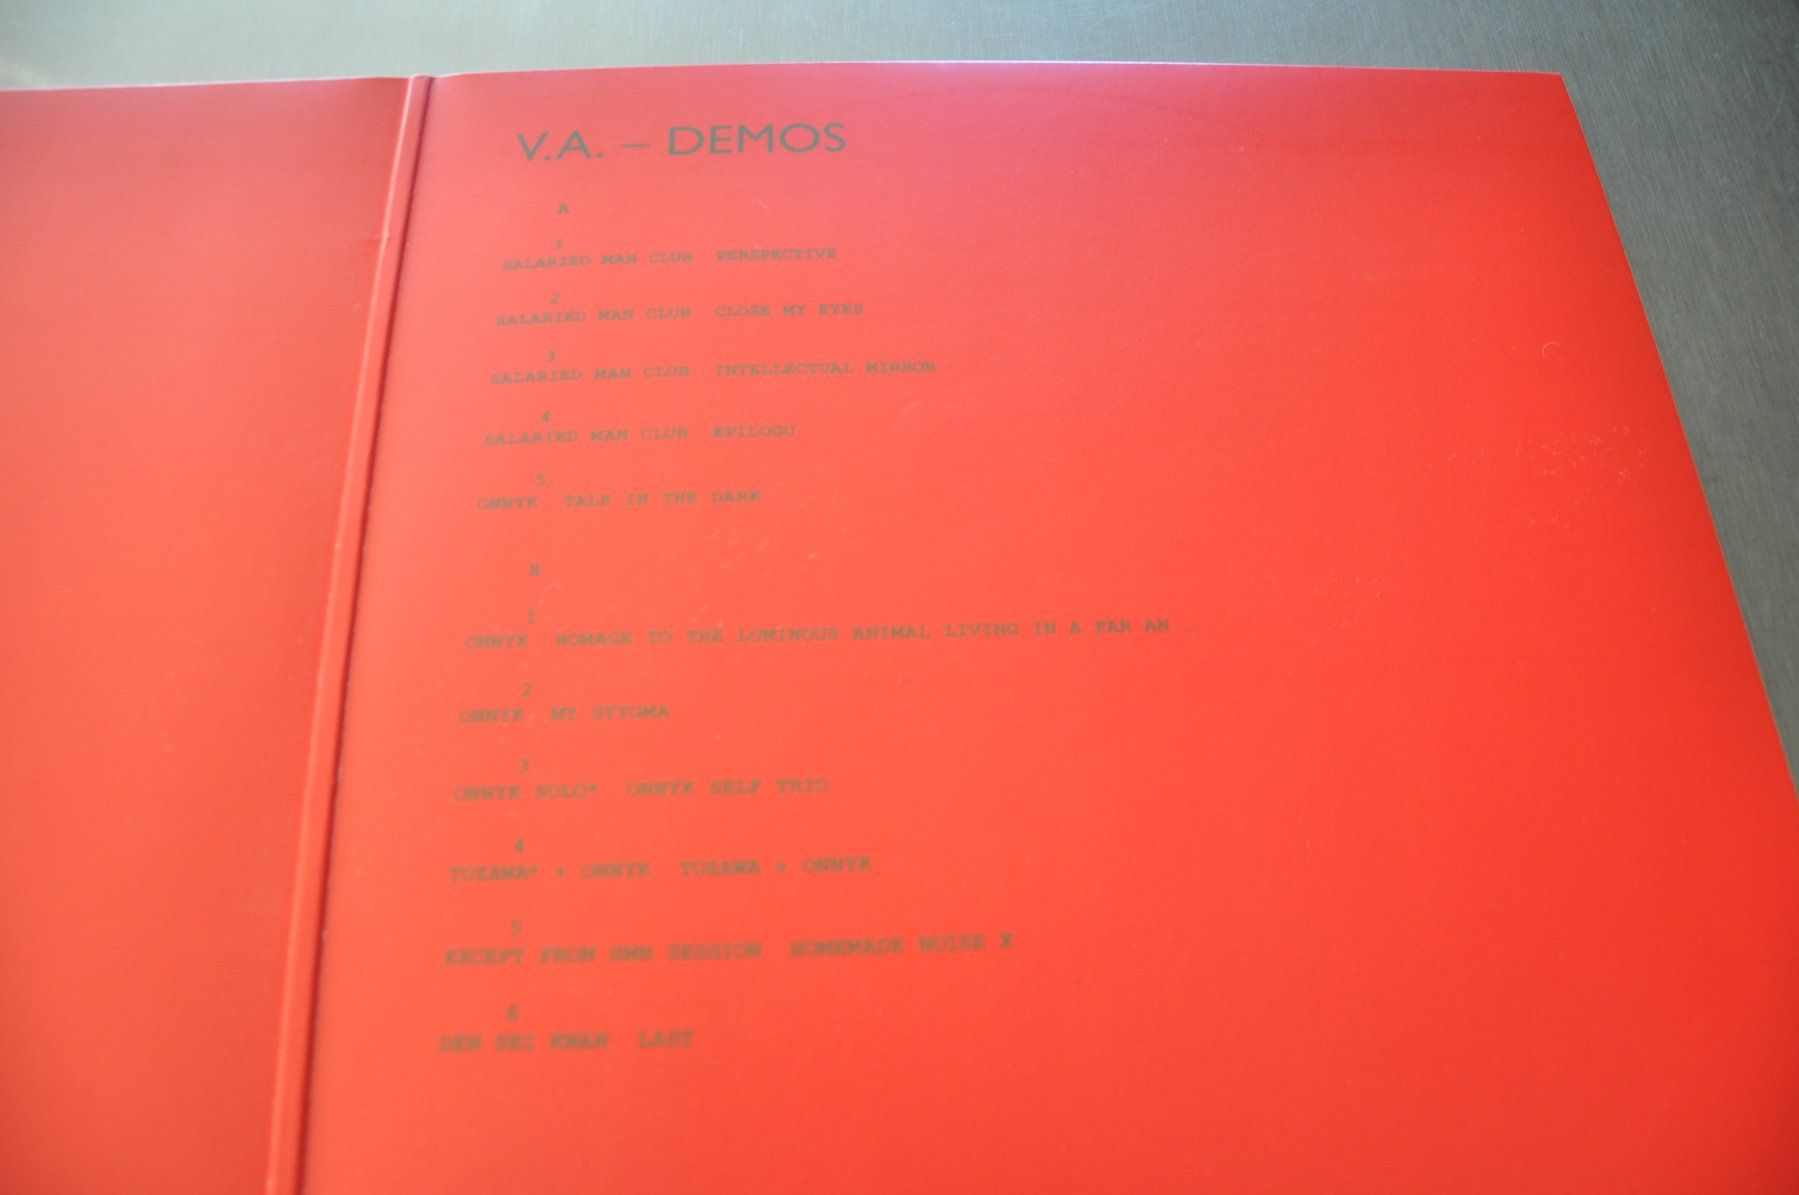 V.A. – DEMOS
A
1
SALARIED MAN CLUB PERSPECTIVE
2
SALARIED MAN CLUB CLOSE MY EYES
3
SALARIED MAN CLUB INTELLECTUAL MIRROR
4
SALARIED MAN CLUB EPILOGU
5
ONNYK TALK IN THE DARK
B
1
ONNYK HOMAGE TO THE LUMINOUS ANIMAL LIVING IN A FAR AN ..
2
ONNYK MY STYGMA
3
ONNYK SOLO* ONNYK SELF TRIO
4
TOZAWA* + ONNYK TOZAWA + ONNYK
5
EXCEPT FROM HMN SESSION HOMEMADE NOISE X
6
DEN SEI KWAN LAST